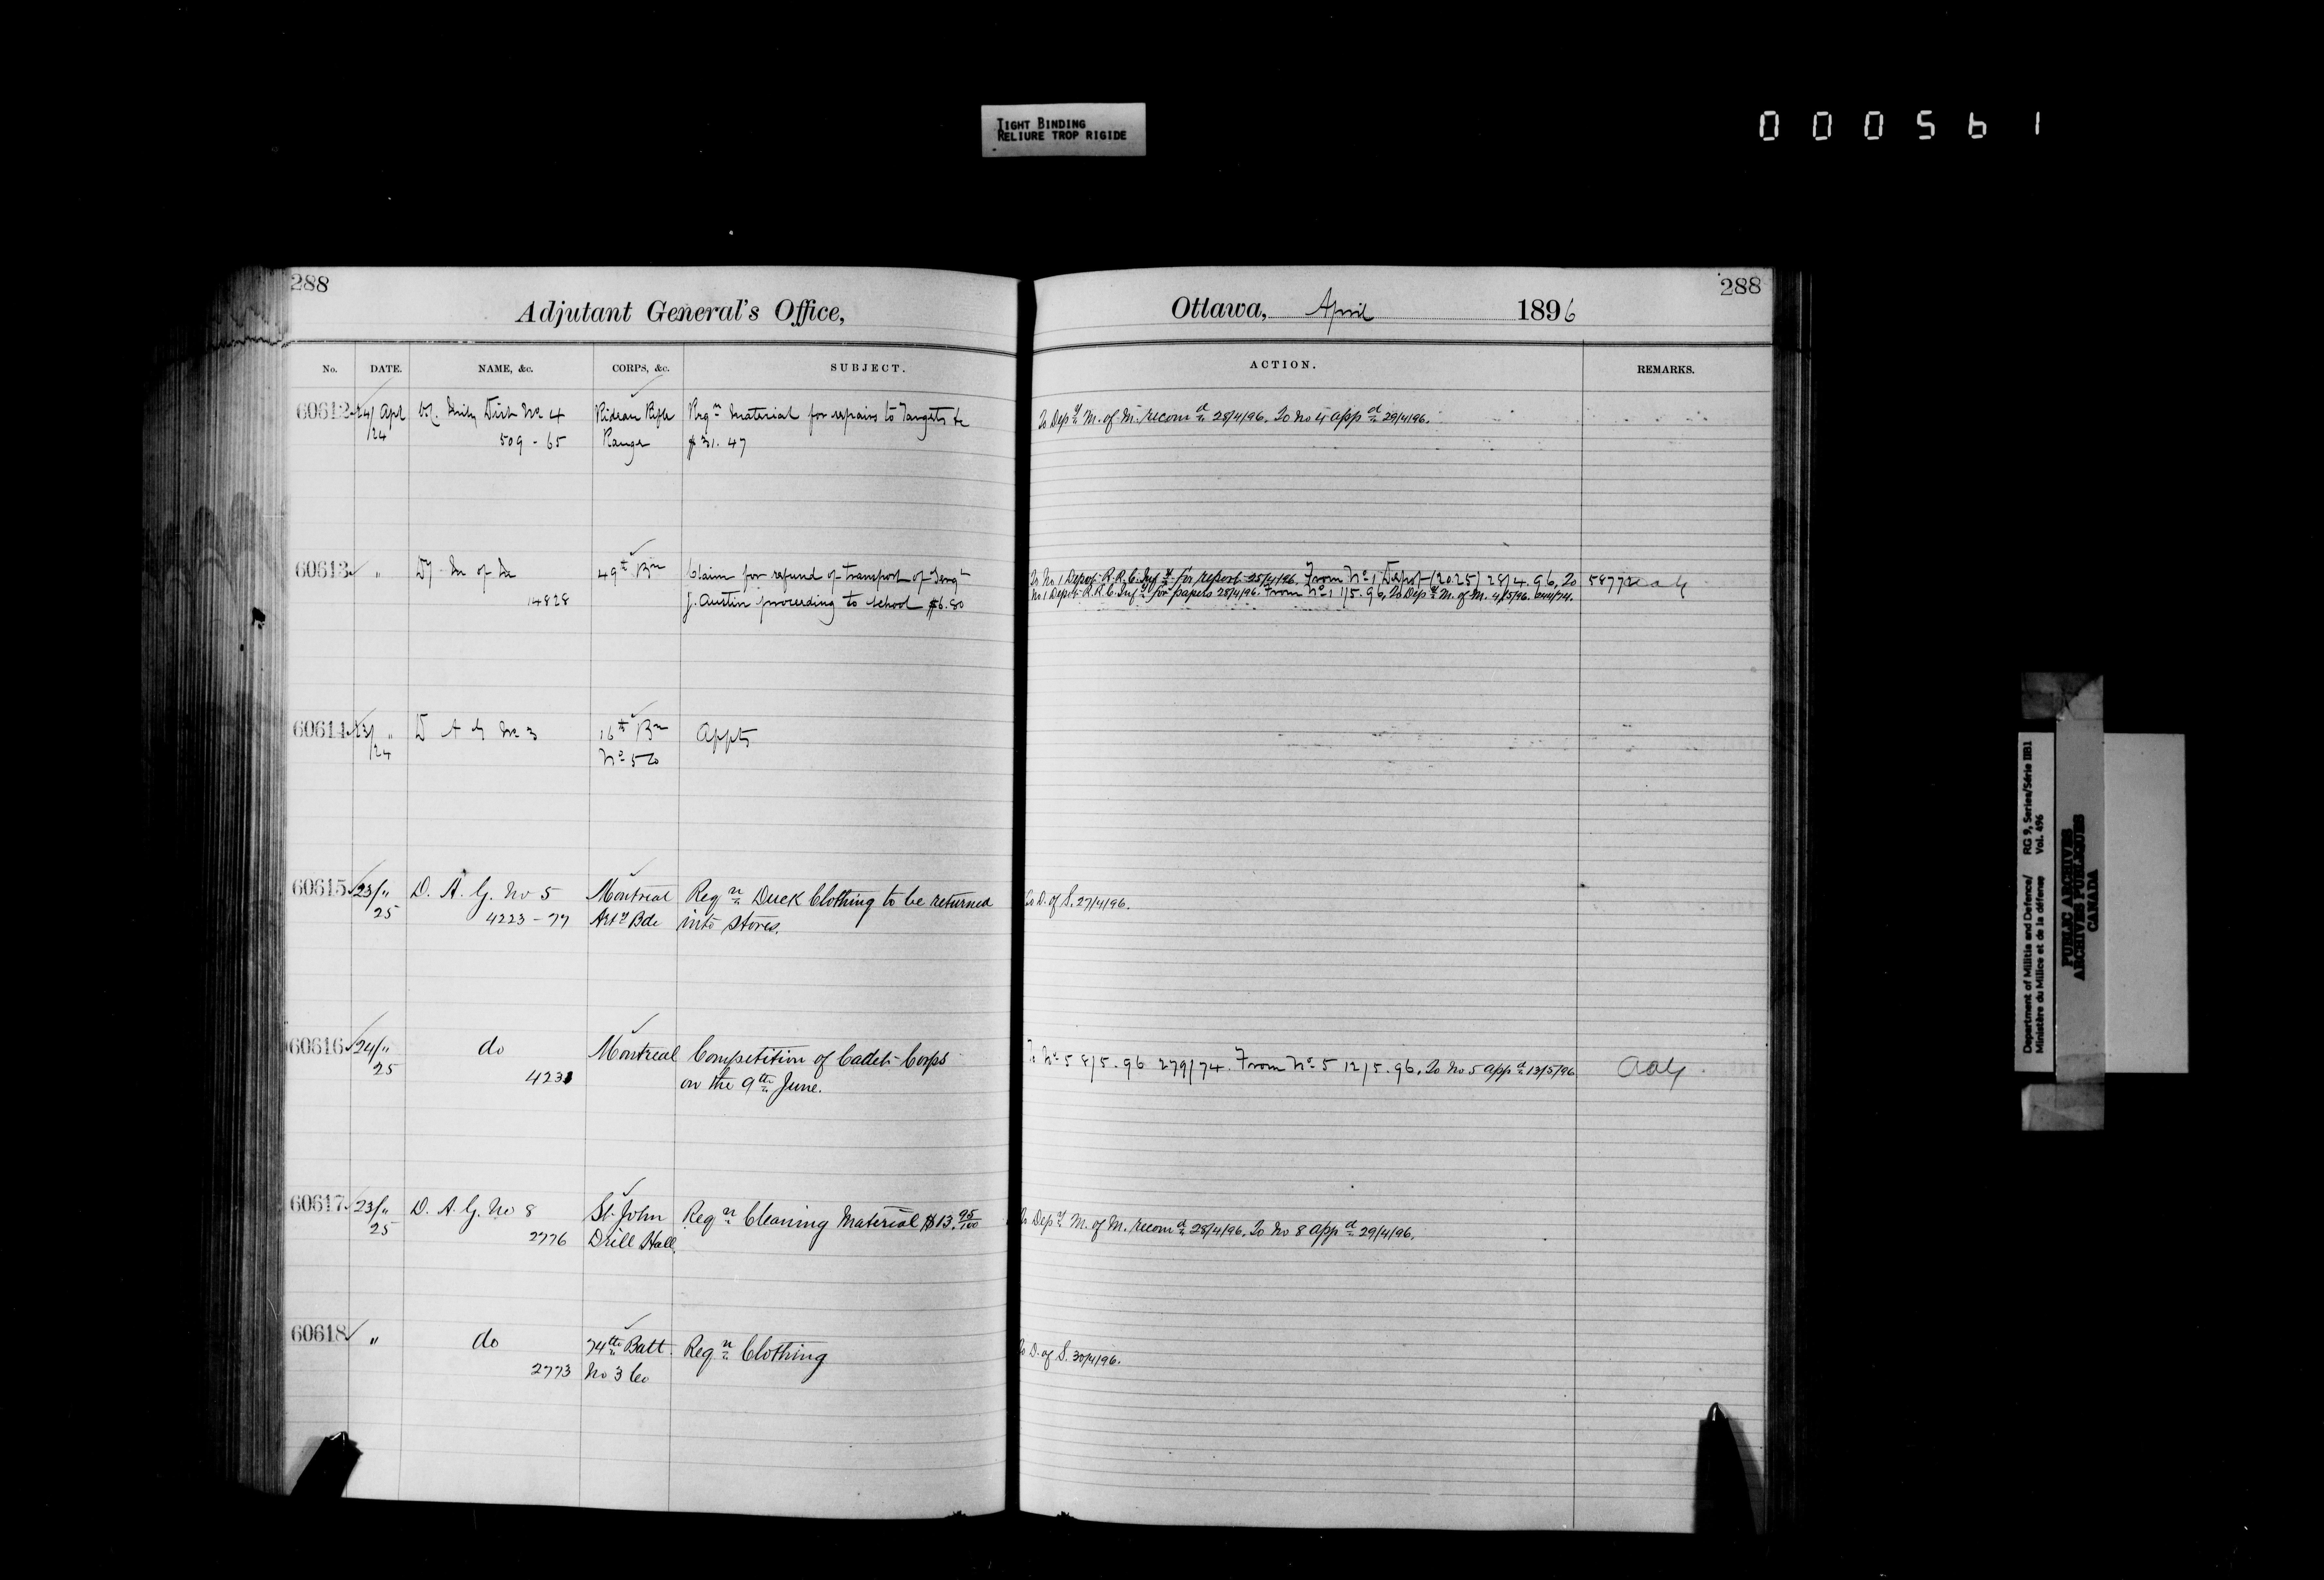 TIGHT BINDING
RELIURE TROP RIGIDE
000561
288
288
Adjutant General's Office,
Ottawa, April 1896
No. DATE. NAME, &c. CORPS, &c. SUBJECT. ACTION. REMARKS.
60612 24/ Apl Mily Dist No 4 Rideau Rifle Reqn Material for repairs to Targets &c To Depy M. of M. recomd 28/4/96. To No 4 appd 29/4/96.
/24 509 - 65 Range $31.47
60613 " Dy M of M 49th Bn Claim for refund of transport of Sergt To No 1 Depot R.R.C. Infy for report 25/4/96. From No 1 Depot (2025) 28/4.96, To 5877
14828 J. Austin proceeding to School $6.80 No 1 Depot R.R.C. Infy for papers 28/4/96. From No 1 1/5.96, To Depy M. of M. 4/5/96.
60614 23/ " D A G No 3 16th Bn Appts
/24 No 5 Co
60615 23/" D. A. G. No 5 Montreal Reqn Duck Clothing to be returned To D. of S. 27/4/96.
25 4223 - 77 Arty Bde into Stores.
60616 24/" do Montreal Competition of Cadet Corps To No 5 8/5.96 279/74. From No 5 12/5.96, To No 5 appd 13/5/96 AAG
25 4231 on the 9th June.
60617 23/" D. A. G. No 8 St. John Reqn Cleaning Material $13.95/100 To Depy M. of M. recomd 28/4/96. To No 8 appd 29/4/96.
25 2776 Drill Hall.
60618 " do 74th Batt. Reqn Clothing To D. of S. 30/4/96.
2773 No 3 Co
Department of Militia and Defence/ RG 9, Series/Série IIB1
Ministère du Milice et de la défense Vol. 496
PUBLIC ARCHIVES
ARCHIVES PUBLIQUES
CANADA